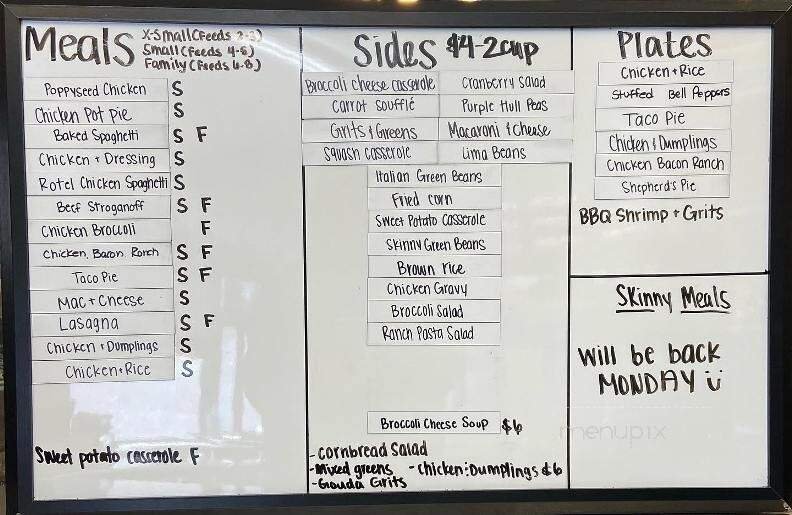 Meals
X-Small (Feeds 2-3)
Small (Feeds 4-5)
Family (Feeds 6-8)
Poppyseed Chicken S
Chicken Pot Pie S
Baked Spaghetti S F
Chicken + Dressing S
Rotel Chicken Spaghetti S
Beef Stroganoff S F
Chicken Broccoli F
Chicken, Bacon, Ranch S F
Taco Pie S F
Mac + Cheese S
Lasagna S F
Chicken + Dumplings S
Chicken + Rice S
Sweet potato casserole F
Sides $4-2cup
Broccoli Cheese Casserole Cranberry Salad
Carrot Soufflé Purple Hull Peas
Grits & Greens Macaroni & Cheese
Squash Casserole Lima Beans
Italian Green Beans
Fried Corn
Sweet Potato Casserole
Skinny Green Beans
Brown Rice
Chicken Gravy
Broccoli Salad
Ranch Pasta Salad
Broccoli Cheese Soup $6
- Cornbread Salad
- Mixed greens - Chicken: Dumplings $6
- Gouda Grits
Plates
Chicken + Rice
Stuffed Bell Peppers
Taco Pie
Chicken & Dumplings
Chicken Bacon Ranch
Shepherd's Pie
BBQ Shrimp + Grits
Skinny Meals
Will be back
MONDAY
menupix